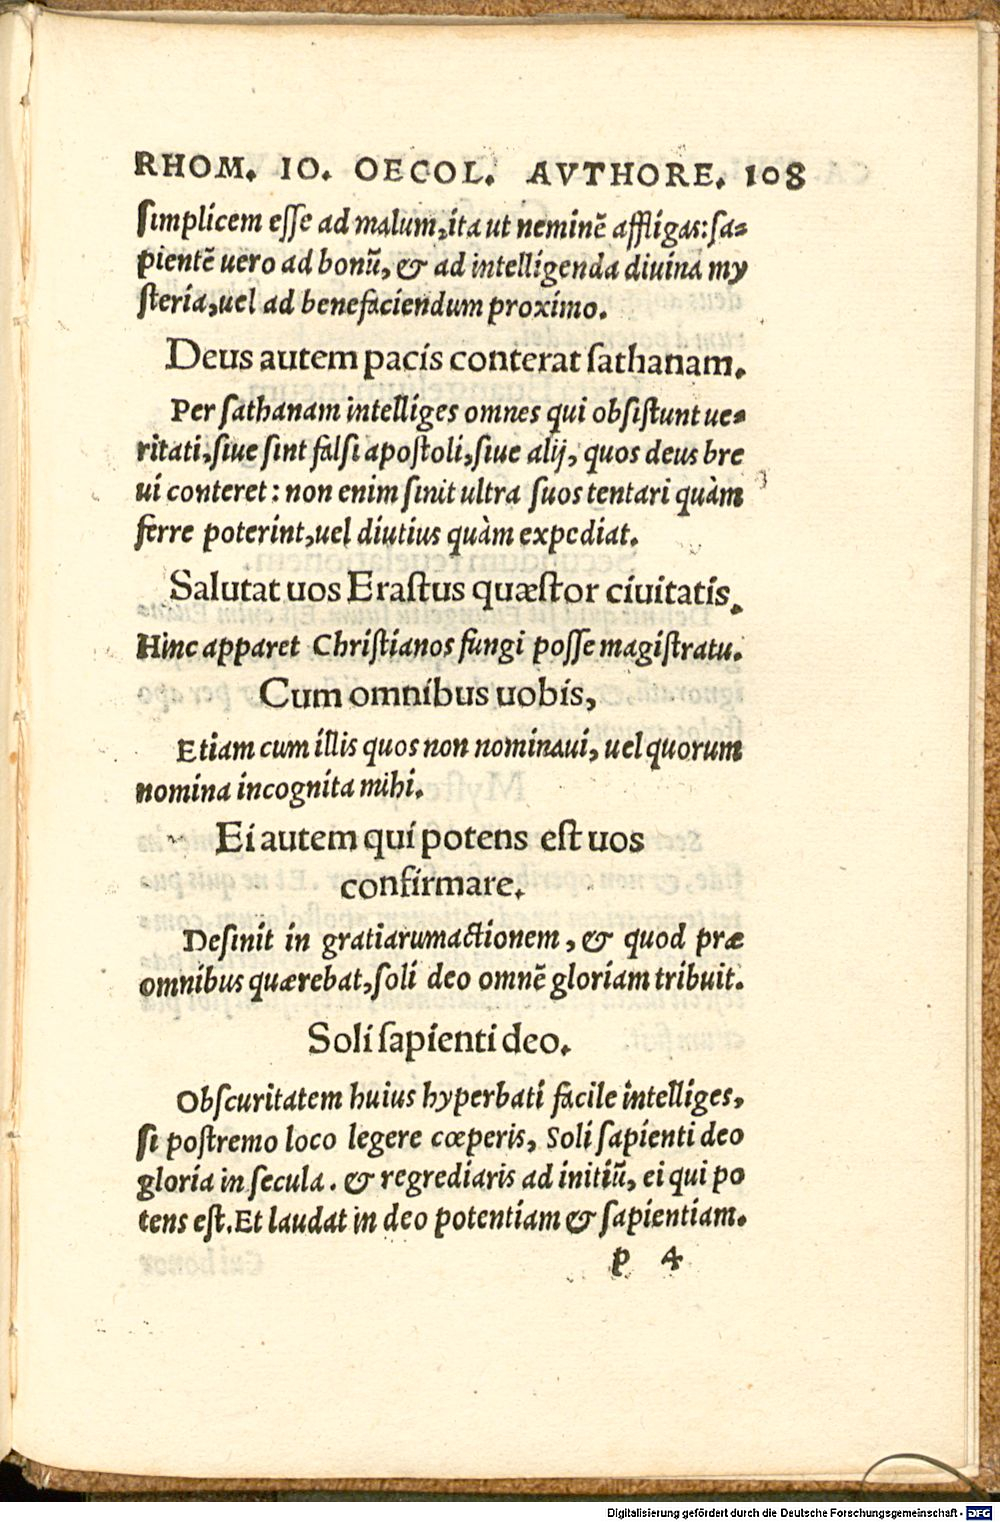 RHOM. IO. OECOL. AVTHORE. 108
simplicem esse ad malum, ita ut neminẽ affligas: sa-
pientẽ uero ad bonũ, & ad intelligenda diuina my
steria, uel ad benefaciendum proximo.
Deus autem pacis conterat sathanam.
Per sathanam intelliges omnes qui obsistunt ue-
ritati, siue sint falsi apostoli, siue alij, quos deus bre
ui conteret: non enim sinit ultra suos tentari quàm
ferre poterint, uel diutius quàm expediat.
Salutat uos Erastus quæstor ciuitatis.
Hinc apparet Christianos fungi posse magistratu.
Cum omnibus uobis,
Etiam cum illis quos non nominaui, uel quorum
nomina incognita mihi.
Ei autem qui potens est uos
confirmare.
Desinit in gratiarumactionem, & quod præ
omnibus quærebat, soli deo omnẽ gloriam tribuit.
Soli sapienti deo.
Obscuritatem huius hyperbati facile intelliges,
si postremo loco legere cœperis, Soli sapienti deo
gloria in secula. & regrediaris ad initiũ, ei qui po
tens est. Et laudat in deo potentiam & sapientiam.
p 4
Digitalisierung gefördert durch die Deutsche Forschungsgemeinschaft - DFG